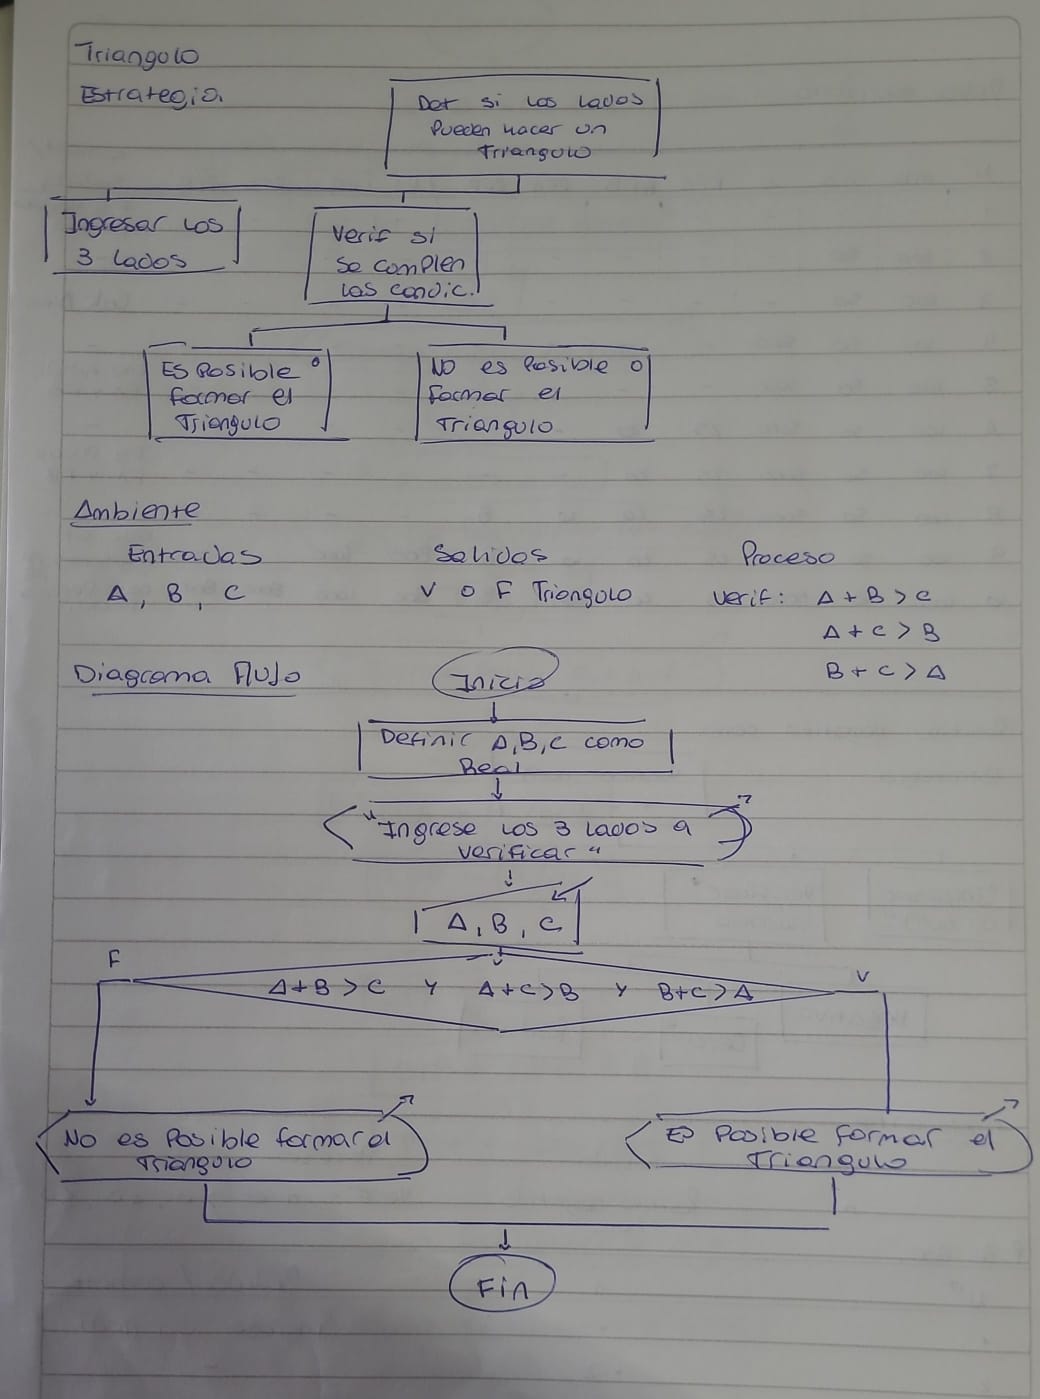 Triangulo
Estrategia
Det si los lados
Pueden hacer un
Triangulo
Ingresar los
3 lados
Verif si
se complen
las condic.
Es Posible o
formar el
Triangulo
No es Posible o
formar el
Triangulo
Ambiente
Entradas Salidas Proceso
A, B, C V o F Triangulo Verif: A + B > C
A + C > B
B + C > A
Diagrama Flujo
Inicio
Definir A, B, C como
Real
"Ingrese los 3 lados a
verificar"
A, B, C
F
V
A+B > C Y A+C > B Y B+C > A
No es Posible formar el
Triangulo
Es Posible formar el
Triangulo
Fin